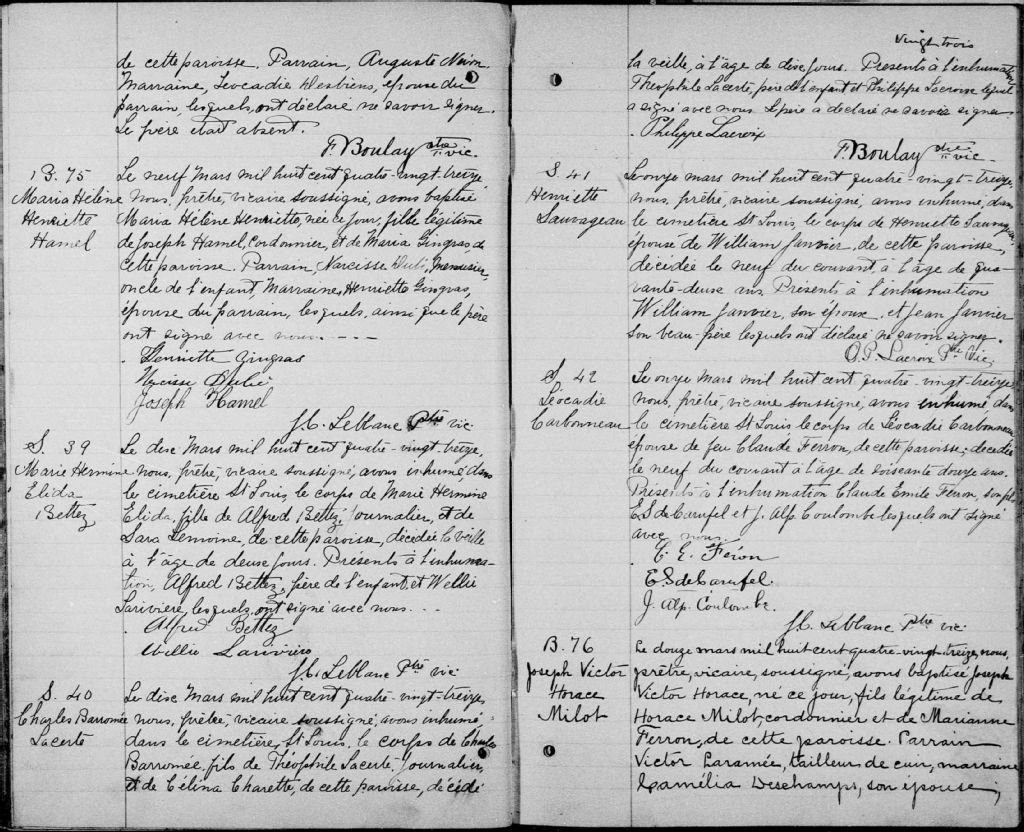 de cette paroisse. Parrain, Auguste
Marraine, Leocadie Desbiens, épouse du
parrain, lesquels, ont déclaré ne savoir signer.
Le père était absent.
F. Boulay ptre vic.
B. 75
Maria Hélène
Henriette
Hamel
Le neuf Mars mil huit cent quatre-vingt-treize,
Nous, prêtre, vicaire soussigné, avons baptisé
Maria Hélène Henriette, née ce jour, fille légitime
de Joseph Hamel, Cordonnier, et de Maria Gingras de
cette paroisse. Parrain Narcisse Dubé, Menuisier,
oncle de l'enfant, Marraine, Henriette Gingras,
épouse du parrain, lesquels, ainsi que le père
ont signé avec nous. - - -
Henriette Gingras
Narcisse Dubé
Joseph Hamel
J.C. Leblanc Ptre vic
S. 39
Marie Hermine
Elida
Bettez
Le dix Mars mil huit cent quatre-vingt-treize,
nous, prêtre, vicaire soussigné, avons inhumé, dans
le cimetière St Louis, le corps de Marie Hermine
Elida, fille de Alfred Bettez, Journalier, et de
Sara Lemoine, de cette paroisse, décédée la veille
à l'âge de deux jours. Présents à l'inhuma-
tion, Alfred Bettez, père de l'enfant, et Wellie
Larivière, lesquels, ont signé avec nous. - - -
Alfred Bettez
Willie Larivière
J.C. Leblanc Ptre vic
S. 40
Charles Barromée
Lacerte
Le dix Mars mil huit cent quatre-vingt-treize,
nous, prêtre, vicaire soussigné, avons inhumé,
dans le cimetière, St Louis, le corps de Charles
Barromée, fils de Théophile Lacerte Journalier,
et de Célina Charette, de cette paroisse, décédé
Vingt trois
la veille, à l'âge de dix jours. Présents à l'inhumation
Théophile Lacerte, père de l'enfant et Philippe Lacroix lequel
a signé avec nous. Le père a déclaré ne savoir signer
Philippe Lacroix
F. Boulay ptre vic.
S. 41
Henriette
Sauvageau
Le onze mars mil huit cent quatre-vingt-treize,
nous, prêtre, vicaire soussigné, avons inhumé, dans
le cimetière St Louis, le corps de Henriette Sauvageau,
épouse de William Janvier, de cette paroisse,
décédée le neuf du courant, à l'âge de qua-
rante-deux ans. Présents à l'inhumation
William Janvier, son époux et Jean Janvier
son beau-père lesquels ont déclaré ne savoir signer.
O.P. Lacroix Ptre Vic.
S. 42
Léocadie
Carbonneau
Le onze Mars mil huit cent quatre-vingt-treize,
nous, prêtre, vicaire soussigné, avons inhumé dans
le cimetière St Louis le corps de Léocadie Carbonneau
épouse de feu Claude Ferron, de cette paroisse, décédée
le neuf du courant à l'âge de soixante douze ans.
Présents à l'inhumation Claude Emile Ferron, son fils
E S de Carufel et J. Alp. Coulombe lesquels ont signé
avec nous.
C. E. Féron
E S de Carufel
J. Alp. Coulombe.
J.C. Leblanc Ptre vic
B. 76
Joseph Victor
Horace
Milot
Le douze mars mil huit cent quatre-vingt-treize, nous,
prêtre, vicaire, soussigné, avons baptisé Joseph
Victor Horace, né ce jour, fils légitime de
Horace Milot, cordonnier et de Marianne
Ferron, de cette paroisse. Parrain
Victor Laramée, tailleur de cuir, marraine
Camélia Deschamps, son épouse,